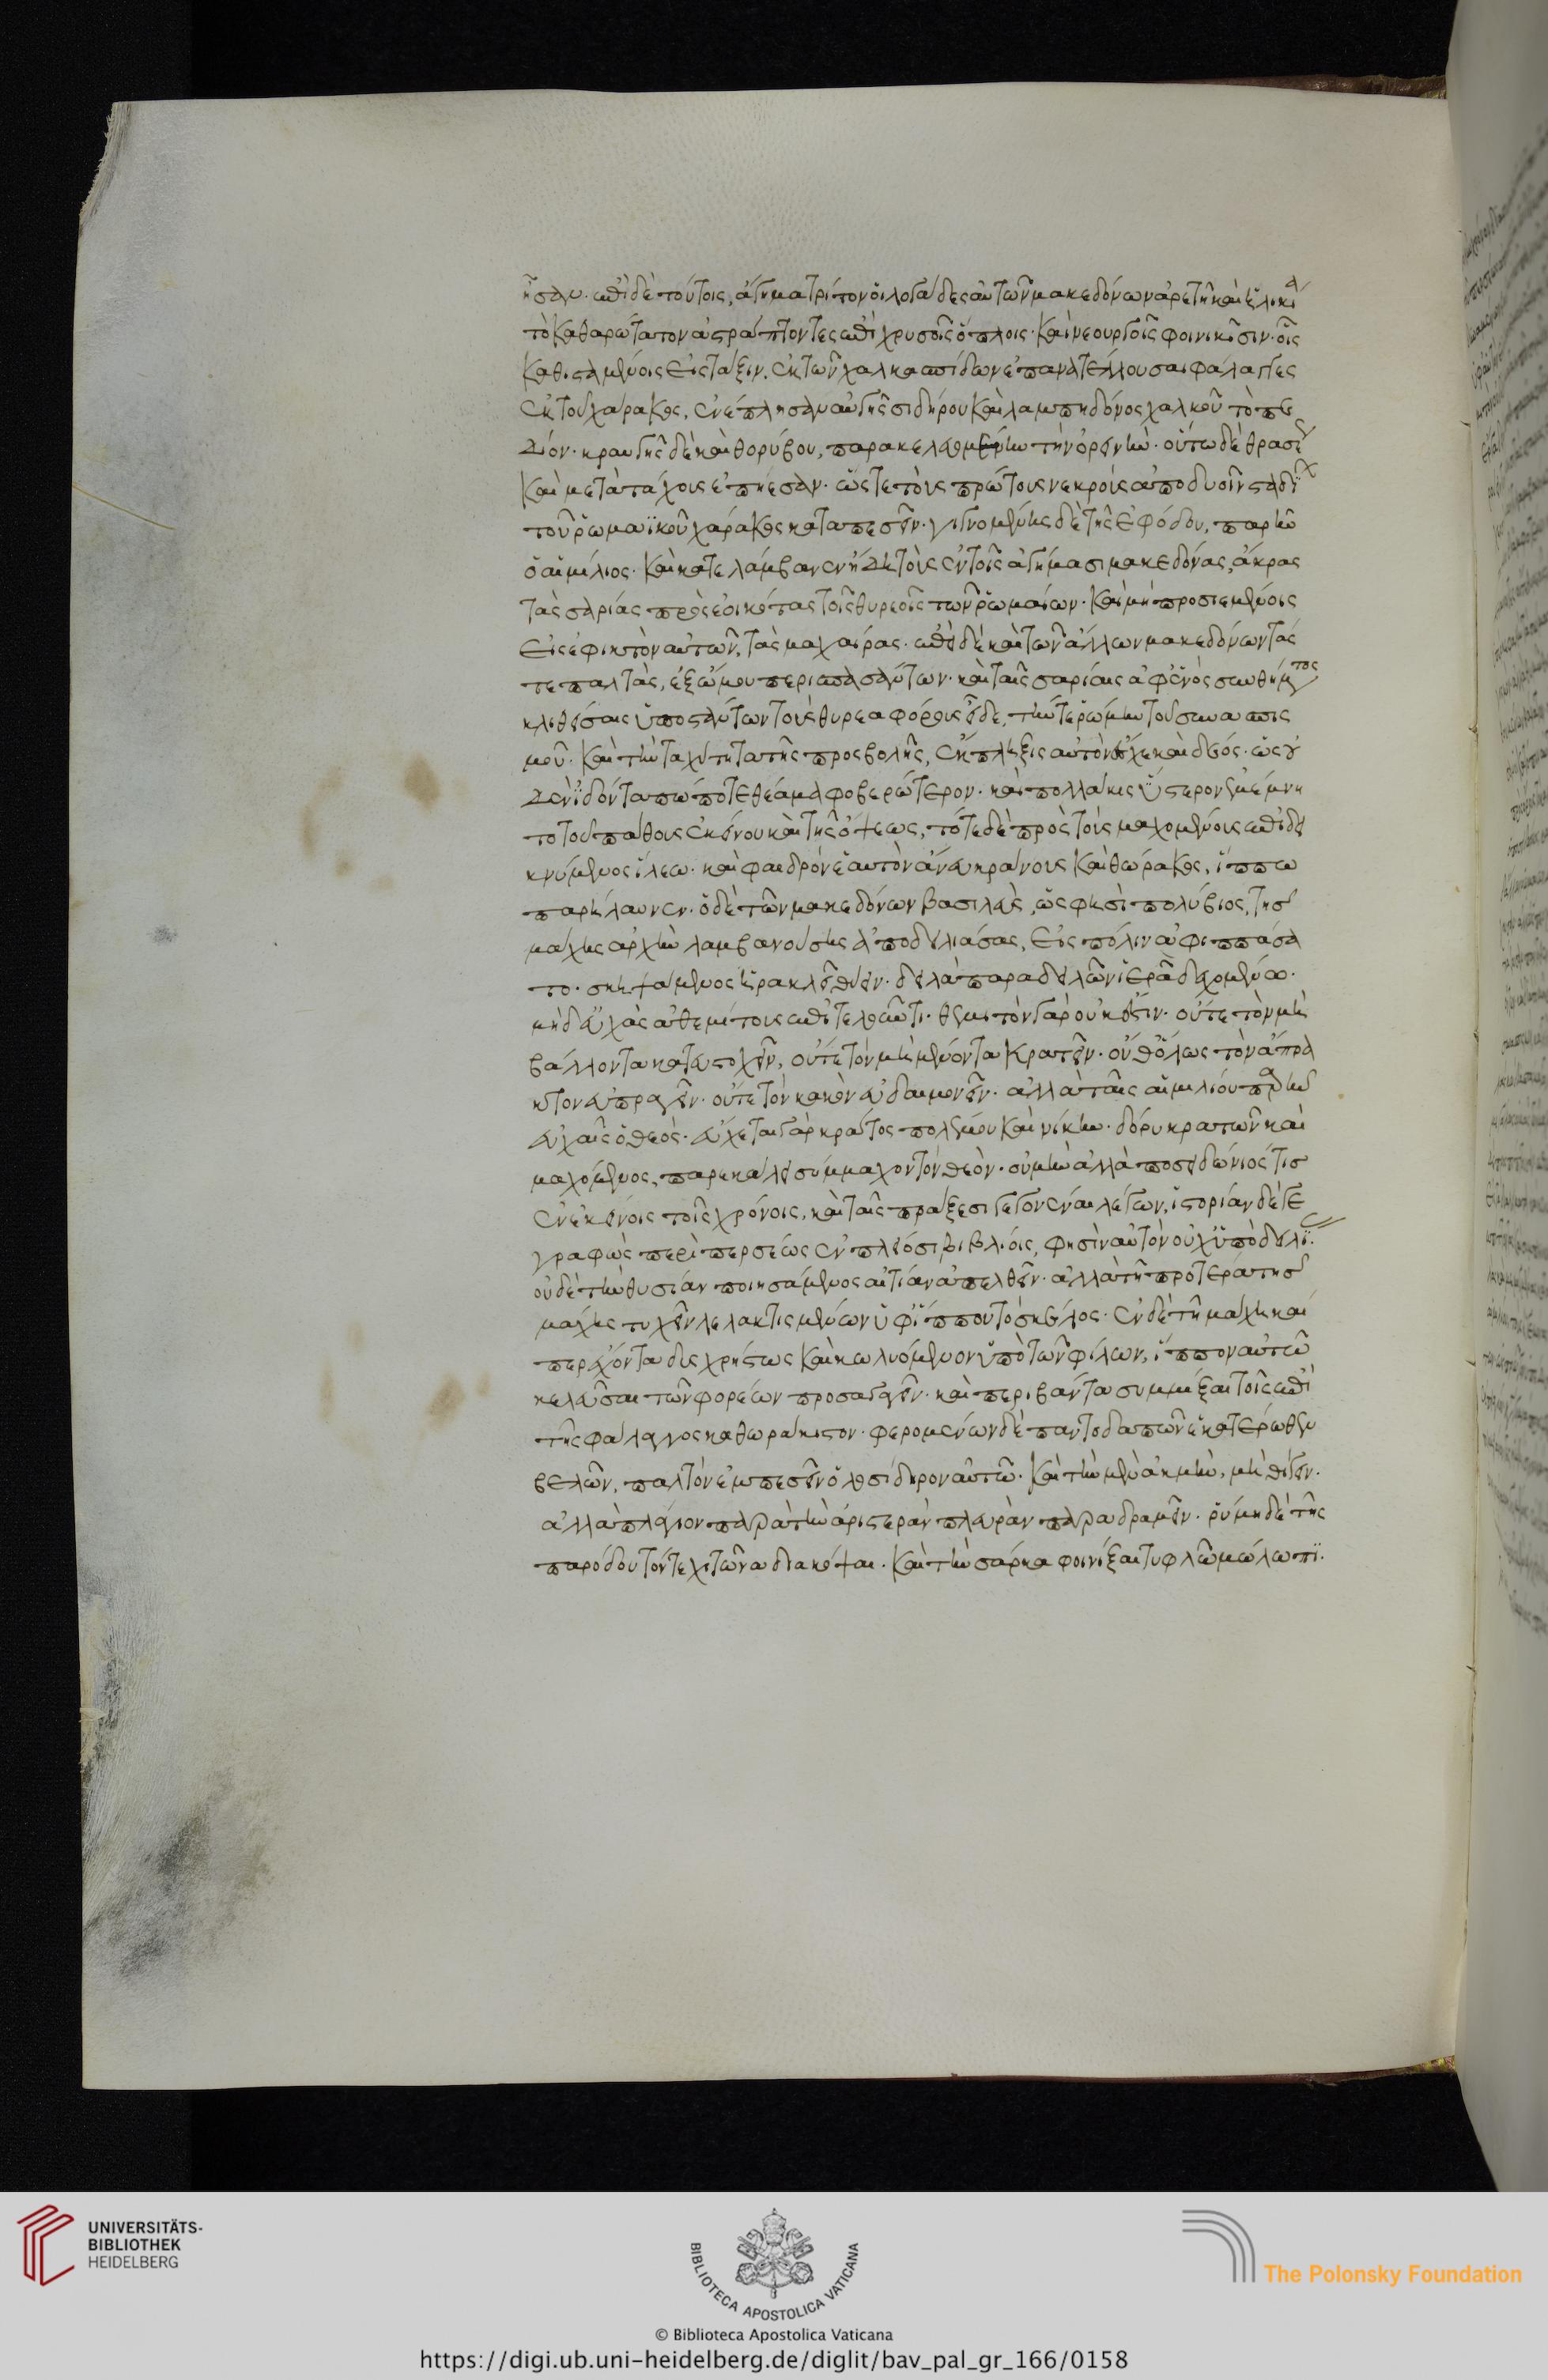 ἦσαν. ἐπὶ δὲ τούτοις, ἄγημα τρίτον οἱ λογάδες αὐτῶν μακεδόνων ἀρετῆ καὶ ἡλικία
τὸ καθαρώτατον ἀστράπτοντες ἐπὶ χρυσοῖς ὅπλοις. καὶ νεουργοῖς φοινικίσιν. οἷς
καθισταμένοις εἰς τάξιν. ἐκ τῶν χαλκασπίδων ἐπανατέλλουσαι φάλαγγες
ἐκ τοῦ χάρακος, ἐνέπλησαν αὐγῆς σιδήρου καὶ λαμπηδόνος χαλκοῦ τὸ πε
δίον. κραυγῆς δὲ καὶ θορύβου, παρακελευομένων τὴν ὀρεινὴν. οὕτω δὲ θρασέως
καὶ μετὰ τάχους ἐπήεσαν. ὥστε τοὺς πρώτους νεκροὺς ἀπὸ δυοῖν σταδίων
τοῦ ῥωμαϊκοῦ χάρακος καταπεσεῖν. γιγνομένης δὲ τῆς ἐφόδου, παρῆν
ὁ αἰμίλιος. καὶ κατελάμβανεν ἤδη τοὺς ἐν τοῖς ἀγήμασι μακεδόνας, ἄκρας
τὰς σαρίσας προσερεικότας τοῖς θυρεοῖς τῶν ῥωμαίων. καὶ μὴ προσιεμένοις
εἰς ἐφικτὸν αὐτῶν, τὰς μαχαίρας. ἐπεὶ δὲ καὶ τῶν ἄλλων μακεδόνων τάς
τε πέλτας, ἐξ ὤμου περισπασάντων. καὶ ταῖς σαρίσαις ἀφ' ἑνὸς συνθήματος
κλιθείσαις ὑποστάντων τοὺς θυρεαφόρους εἶδε, τήν τε ῥώμην τοῦ συνασπισ
μοῦ. καὶ τὴν ταχύτητα τῆς προσβολῆς, ἔκπληξις αὐτὸν εἶχε καὶ δέος. ὡς οὐ
δὲν ἰδόντα πώποτε θέαμα φοβερώτερον. καὶ πολλάκις ὕστερον ἐμέμνη
το τοῦ πάθους ἐκείνου καὶ τῆς ὄψεως, τότε δὲ πρὸς τοὺς μαχομένους ἐπιδει
κνύμενος ἵλεω. καὶ φαιδρὸν ἑαυτὸν ἄνευ κράνους καὶ θώρακος, ἵππω
παρήλαυνεν. ὁ δὲ τῶν μακεδόνων βασιλεὺς, ὥς φησὶ πολύβιος, τῆς
μάχης ἀρχὴν λαμβανούσης ἀποδειλιάσας, εἰς πόλιν ἀφιππάσα
το. σκηψάμενος ἡρακλεῖ θύειν. δειλὰ παρὰ δειλῶν ἱερὰ δεχομένω.
μηδ' εὐχὰς ἀθεμίτους ἐπιτελοῦντι. θεμιτὸν γὰρ οὐκ ἔστιν. οὔτε τὸν μὴ
βάλλοντα κατευστοχεῖν, οὔτε τὸν μὴ μένοντα κρατεῖν. οὐθ' ὅλως τὸν ἄπρα
κτον εὐπραγεῖν. οὔτε τὸν κακὸν εὐδαιμονεῖν. ἀλλὰ ταῖς αἰμιλίου παρῆν
εὐχαῖς ὁ θεὸς. εὔχεται γὰρ κράτος πολέμου καὶ νίκην. δόρυ κρατῶν καὶ
μαχόμενος, παρεκάλει σύμμαχον τὸν θεὸν. οὐ μὴν ἀλλὰ ποσειδώνιός τις
ἐν ἐκείνοις τοῖς χρόνοις, καὶ ταῖς πράξεσι γεγονέναι λέγων, ἱστορίαν δὲ γε
γραφὼς περὶ περσέως ἐν πλείοσι βιβλίοις, φησὶν αὐτὸν οὐχ ὑπὸ δειλίας
οὐδὲ τὴν θυσίαν ποιησάμενος αἰτίαν ἀπελθεῖν. ἀλλὰ τῆ προτέρα τῆς
μάχης τυχεῖν λελακτισμένων ὑφ' ἵππου τὸ σκέλος. ἐν δὲ τῆ μάχη καί
περ ἔχοντα δυσχρήστως καὶ κωλυόμενον ὑπὸ τῶν φίλων, ἵππον αὐτῶ
κελεῦσαι τῶν φορέων προσαγαγεῖν. καὶ περιβάντα συμμίξαι τοῖς ἐπὶ
τῆς φάλαγγος ἀθωράκιστον. φερομένων δὲ παντοδαπῶν ἑκατέρωθεν
βελῶν, παλτὸν ἐμπεσεῖν ὁλοσίδηρον αὐτῶ. καὶ τὴν μὲν ἀκμὴν, μὴ θίγειν.
ἀλλὰ πλάγιον παρὰ τὴν ἀριστερὰν πλευρὰν παραδραμεῖν. ῥύμη δὲ τῆς
παρόδου τόν τε χιτῶνα διακόψαι. καὶ τὴν σάρκα φοινίξαι τυφλῶ μώλωπι.
UNIVERSITÄTS-
BIBLIOTHEK
HEIDELBERG
BIBLIOTECA APOSTOLICA VATICANA
The Polonsky Foundation
© Biblioteca Apostolica Vaticana
https://digi.ub.uni-heidelberg.de/diglit/bav_pal_gr_166/0158